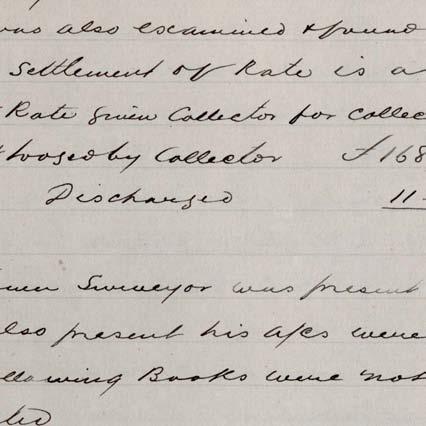 was also examined & found
Settlement of Rate is a
Rate given Collector for collec
by Collector £168
Discharged 11-
Surveyor was present
also present his a/cs were
llowing Books were not
ted